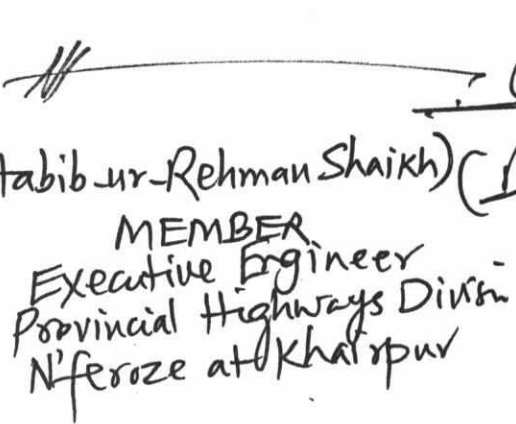 Habib-ur-Rehman Shaikh) (
MEMBER
Executive Engineer
Provincial Highways Divisn
N'feroze at Khairpur